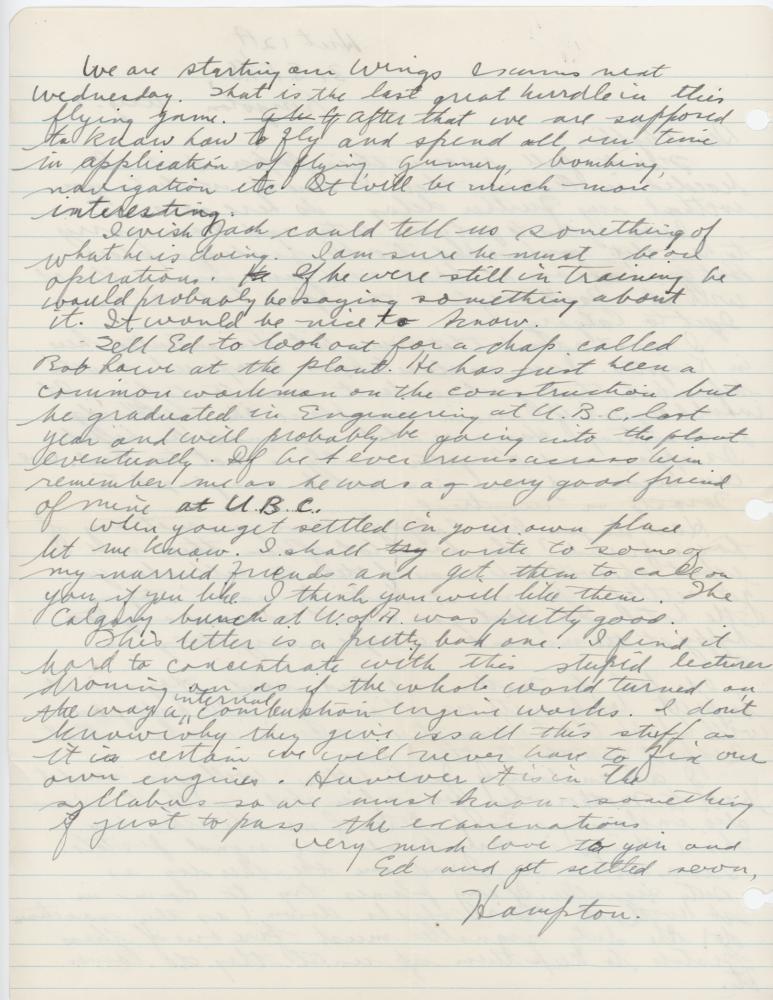 We are starting our Wings exams next
Wednesday. That is the last great hurdle in this
flying game. After that we are supposed
to know how to fly and spend all our time
in application of flying, gunnery, bombing,
navigation etc. It will be much more
interesting.
I wish Jack could tell us something of
what he is doing. I am sure he must be on
operations. If he were still in training he
would probably be saying something about
it. It would be nice to know.
Tell Ed to look out for a chap called
Bob at the plant. He has just been a
common workman on the construction but
he graduated in Engineering at U.B.C. last
year and will probably be going into the plant
eventually. If he ever runs across him
remember me as he was a very good friend
of mine at U.B.C.
When you get settled in your own place
let me know. I shall try write to some of
my married friends and get them to call on
you if you like. I think you will like them. The
Calgary bunch at U. of A. was pretty good.
This letter is a pretty bad one. I find it
hard to concentrate with this stupid lecturer
droning on as if the whole world turned on
the way a internal combustion engine works. I don't
know why they give us all this stuff as
it is certain we will never have to fix our
own engines. However it is in the
syllabus so we must know something
if just to pass the examinations
Very much love to you and
Ed and get settled soon,
Hampton.